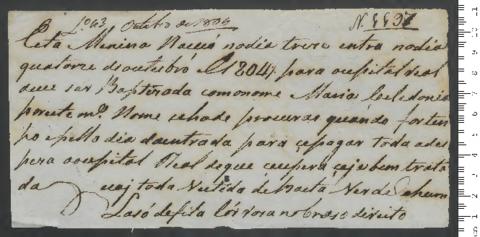 1043 Octubro de 1804 N. 1137
Esta Menina Naceu nodia treze entra nodia
quatorze de outubro de 1804 para ospital Real
deve ser Baptizada como nome Maria Celedonia
por este mº Nome se hade procurar quando for tem
po e pello dia da entrada para se pagar toda a des
peza aospital Real de que se espera seja bem trata
da vaj toda Vestida de Baeta Verde e hum
Laso de fita Cor roza no braso direito